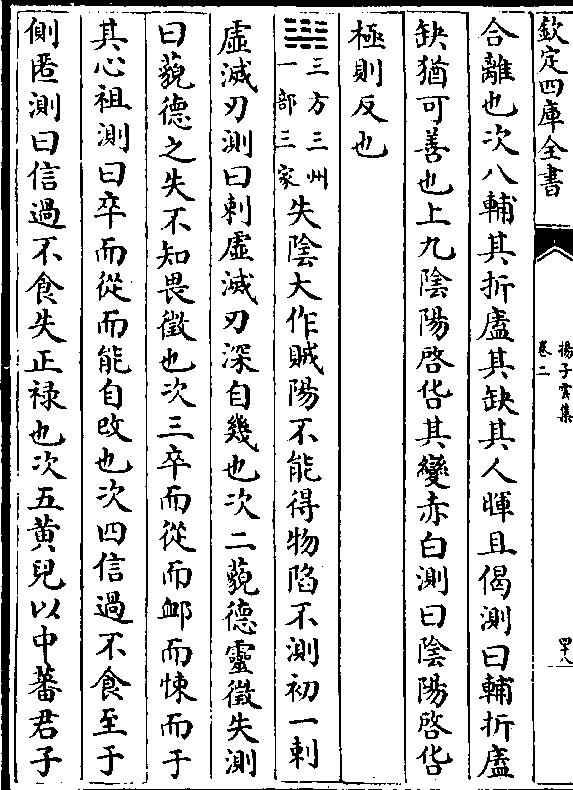 欽定四庫全書
揚子雲集
卷二
四十八
合離也次八輔其折廬其缺其人暉且偈測曰輔折廬
缺猶可善也上九陰陽啓呰其變赤白測曰陰陽啓呰
極則反也
三方三州
一部三家
失陰大作賊陽不能得物陷不測初一刺
虛滅刃測曰刺虛滅刃深自幾也次二藐德靈徵失測
曰藐德之失不知畏徵也次三卒而從而衈而悚而于
其心祖測曰卒而從而能自改也次四信過不食至于
側匿測曰信過不食失正禄也次五黃兒以中蕃君子